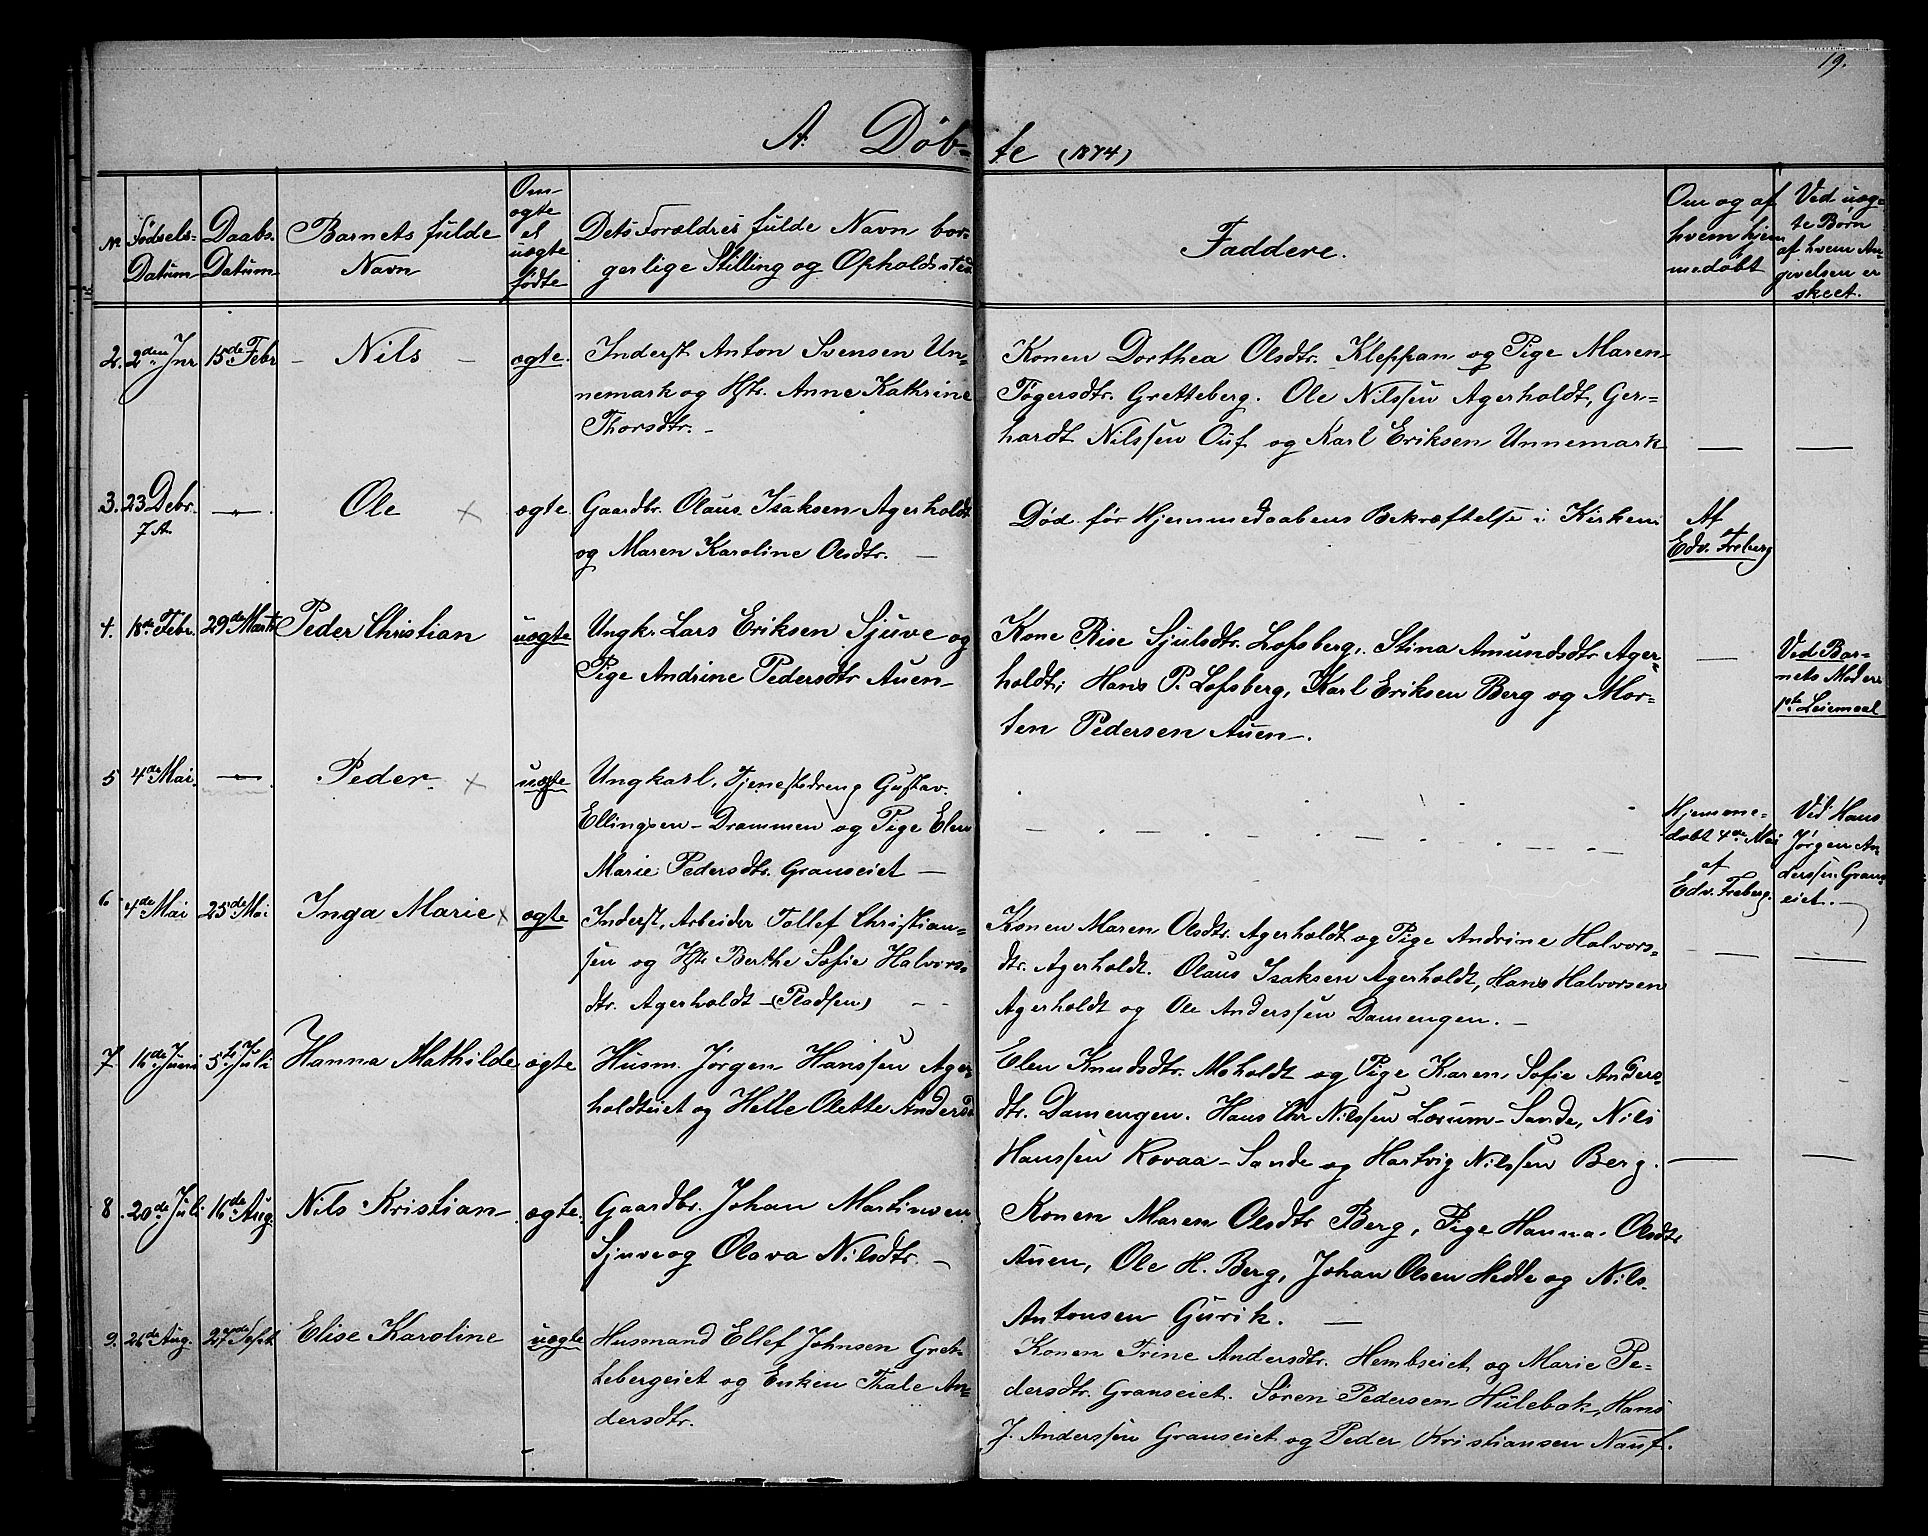 19.
A. Døb- te (1874)
No
Fødsels-
Datum
Daabs-
Datum
Barnets fulde
Navn
Om
ægte
el
uægte
fødte
Dets Forældres fulde Navn bor-
gerlige Stilling og Opholdssted
Faddere.
Om og af
hvem hjem
medøbt
Ved uæg-
te Børn
af hvem An-
givelsen er
skeet.
2. 2den Jnr 15de Febr - Nils - ægte. Inderst Anton Svensen Un-
nemark og Hst. Anne Kathrine
Thorsdtr. -
Konen Dorthea Olsdtr. Kleppan og Pige Maren
Togersdtr. Gretteberg. Ole Nilssen Agerholdt, Ger-
hardt Nilssen Ouf og Karl Eriksen Unnemark — —
3. 23 Debr.
7A
—„— Ole × ægte. Gaardbr. Olaus Isaksen Agerholdt
og Maren Karoline Olsdtr. —
Død før Hjemmedaabens Bekræftelse i Kirken
Af
Edv. Freberg
4. 18de Febr. 29de Marts Peder Christian uægte Ungk. Lars Eriksen Sjuve og
Pige Andrine Pedersdtr Auen-
Kone Rise Sjulsdtr. Lofsberg, Stina Amundsdtr Ager-
holdt; Hans P. Lofsberg, Karl Eriksen Berg og Mor-
ten Pedersen Auen.
—
Ved Bar-
nets Moder
1ste Leiemaal
5 4de Mai — Peder × uægte Ungkarl, Tjenestedreng Gustav
Ellingsen - Drammen og Pige Elen
Marie Pedersdtr. Granseiet —
Hjemme-
døbt 4de Mai
af
Edv. Freberg.
Ved Hans
Jørgen An-
derssen Grans-
eiet. —
6 4de Mai 25de Mai Inga Marie × ægte Inderst, Arbeider Tollef Christian-
sen og Hst. Berthe Sofie Halvors-
dtr. Agerholdt - (Pladsen) - -
Konen Maren Olsdtr. Agerholdt og Pige Andrine Halvors-
dtr. Agerholdt. Olaus Isaksen Agerholdt, Hans Halvorsen
Agerholdt og Ole Anderssen Damengen. -
— —
7. 16de Juni 5te Juli Hanna Mathilde ægte Husm. Jørgen Hanssen Ager-
holdteiet og Helle Olette Andersd
Elen Knudsdtr. Moholdt og Pige Karen Sofie Anders-
dtr. Damengen. Hans Chr Nilssen Lærum - Sande, Nils
Hanssen Rovaa - Sande og Hartvig Nilssen Berg. — —
8. 20de Juli 16de Aug. Nils Kristian ægte. Gaardbr. Johan Martinsen
Sjuve og Olava Nilsdtr. —
Konen Maren Olsdtr Berg, Pige Hanna Olsdtr
Auen, Ole H. Berg, Johan Olsen Hedde og Nils
Antonsen Gurik. —
9. 26de Aug. 27de Sept. Elise Karoline uægte Husmand Ellef Johnsen Gret-
tebergeiet og Enken Thale An-
dersdtr.
Konen Trine Andersdtr. Hembseiet og Marie Pe-
dersdtr. Granseiet. Søren Pedersen Hulebak, Hans
J. Anderssen Granseiet og Peder Kristiansen Nauf.